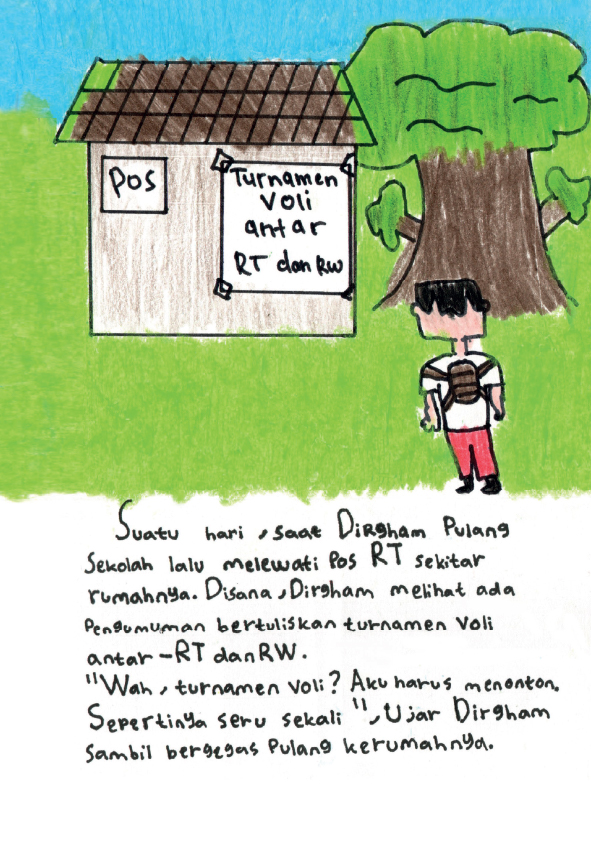 Pos
Turnamen
Voli
antar
RT dan RW
Suatu hari, saat Dirgham Pulang
Sekolah lalu melewati Pos RT sekitar
rumahnya. Disana, Dirgham melihat ada
Pengumuman bertuliskan turnamen voli
antar-RT dan RW.
"Wah, turnamen voli? Aku harus menonton.
Sepertinya seru sekali", Ujar Dirgham
Sambil bergegas Pulang kerumahnya.